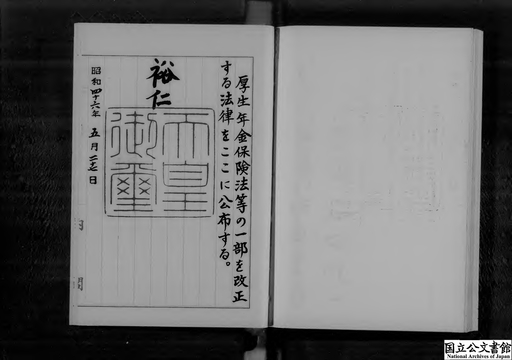 厚生年金保険法等の一部を改正
する法律をここに公布する。
裕仁
天皇
御璽
昭和四十六年五月二十七日
国立公文書館
National Archives of Japan